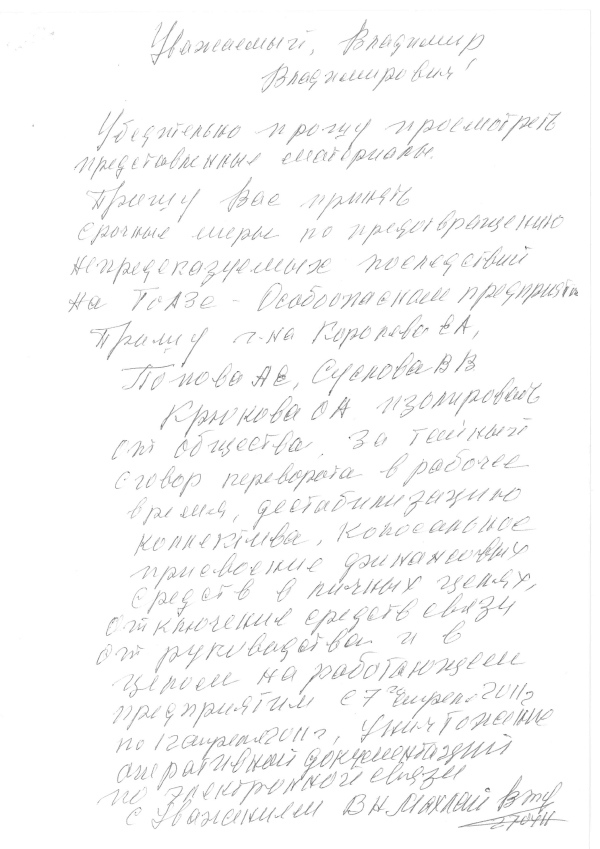 Уважаемый, Владимир
Владимирович!
Убедительно прошу просмотреть
представленные материалы.
Прошу Вас принять
срочные меры по предотвращению
непредсказуемых последствий
на ТоАЗе - Особоопасном предприятии
Прошу г-на Королева ЕА,
Попова АС, Суслова ВВ
Крюкова ОА изолировать
от общества. За тайный
сговор переворота в рабочее
время, дестабилизацию
коллектива, колосальное
присвоение финансовых
средств в личных целях,
отключение средств связи
от руководства и в
целом на работающем
предприятии с 7 апреля 2011г
по 12 апреля 2011г, Уничтожение
оперативный документаций
по электронной связи
с Уважением В Н Махлай